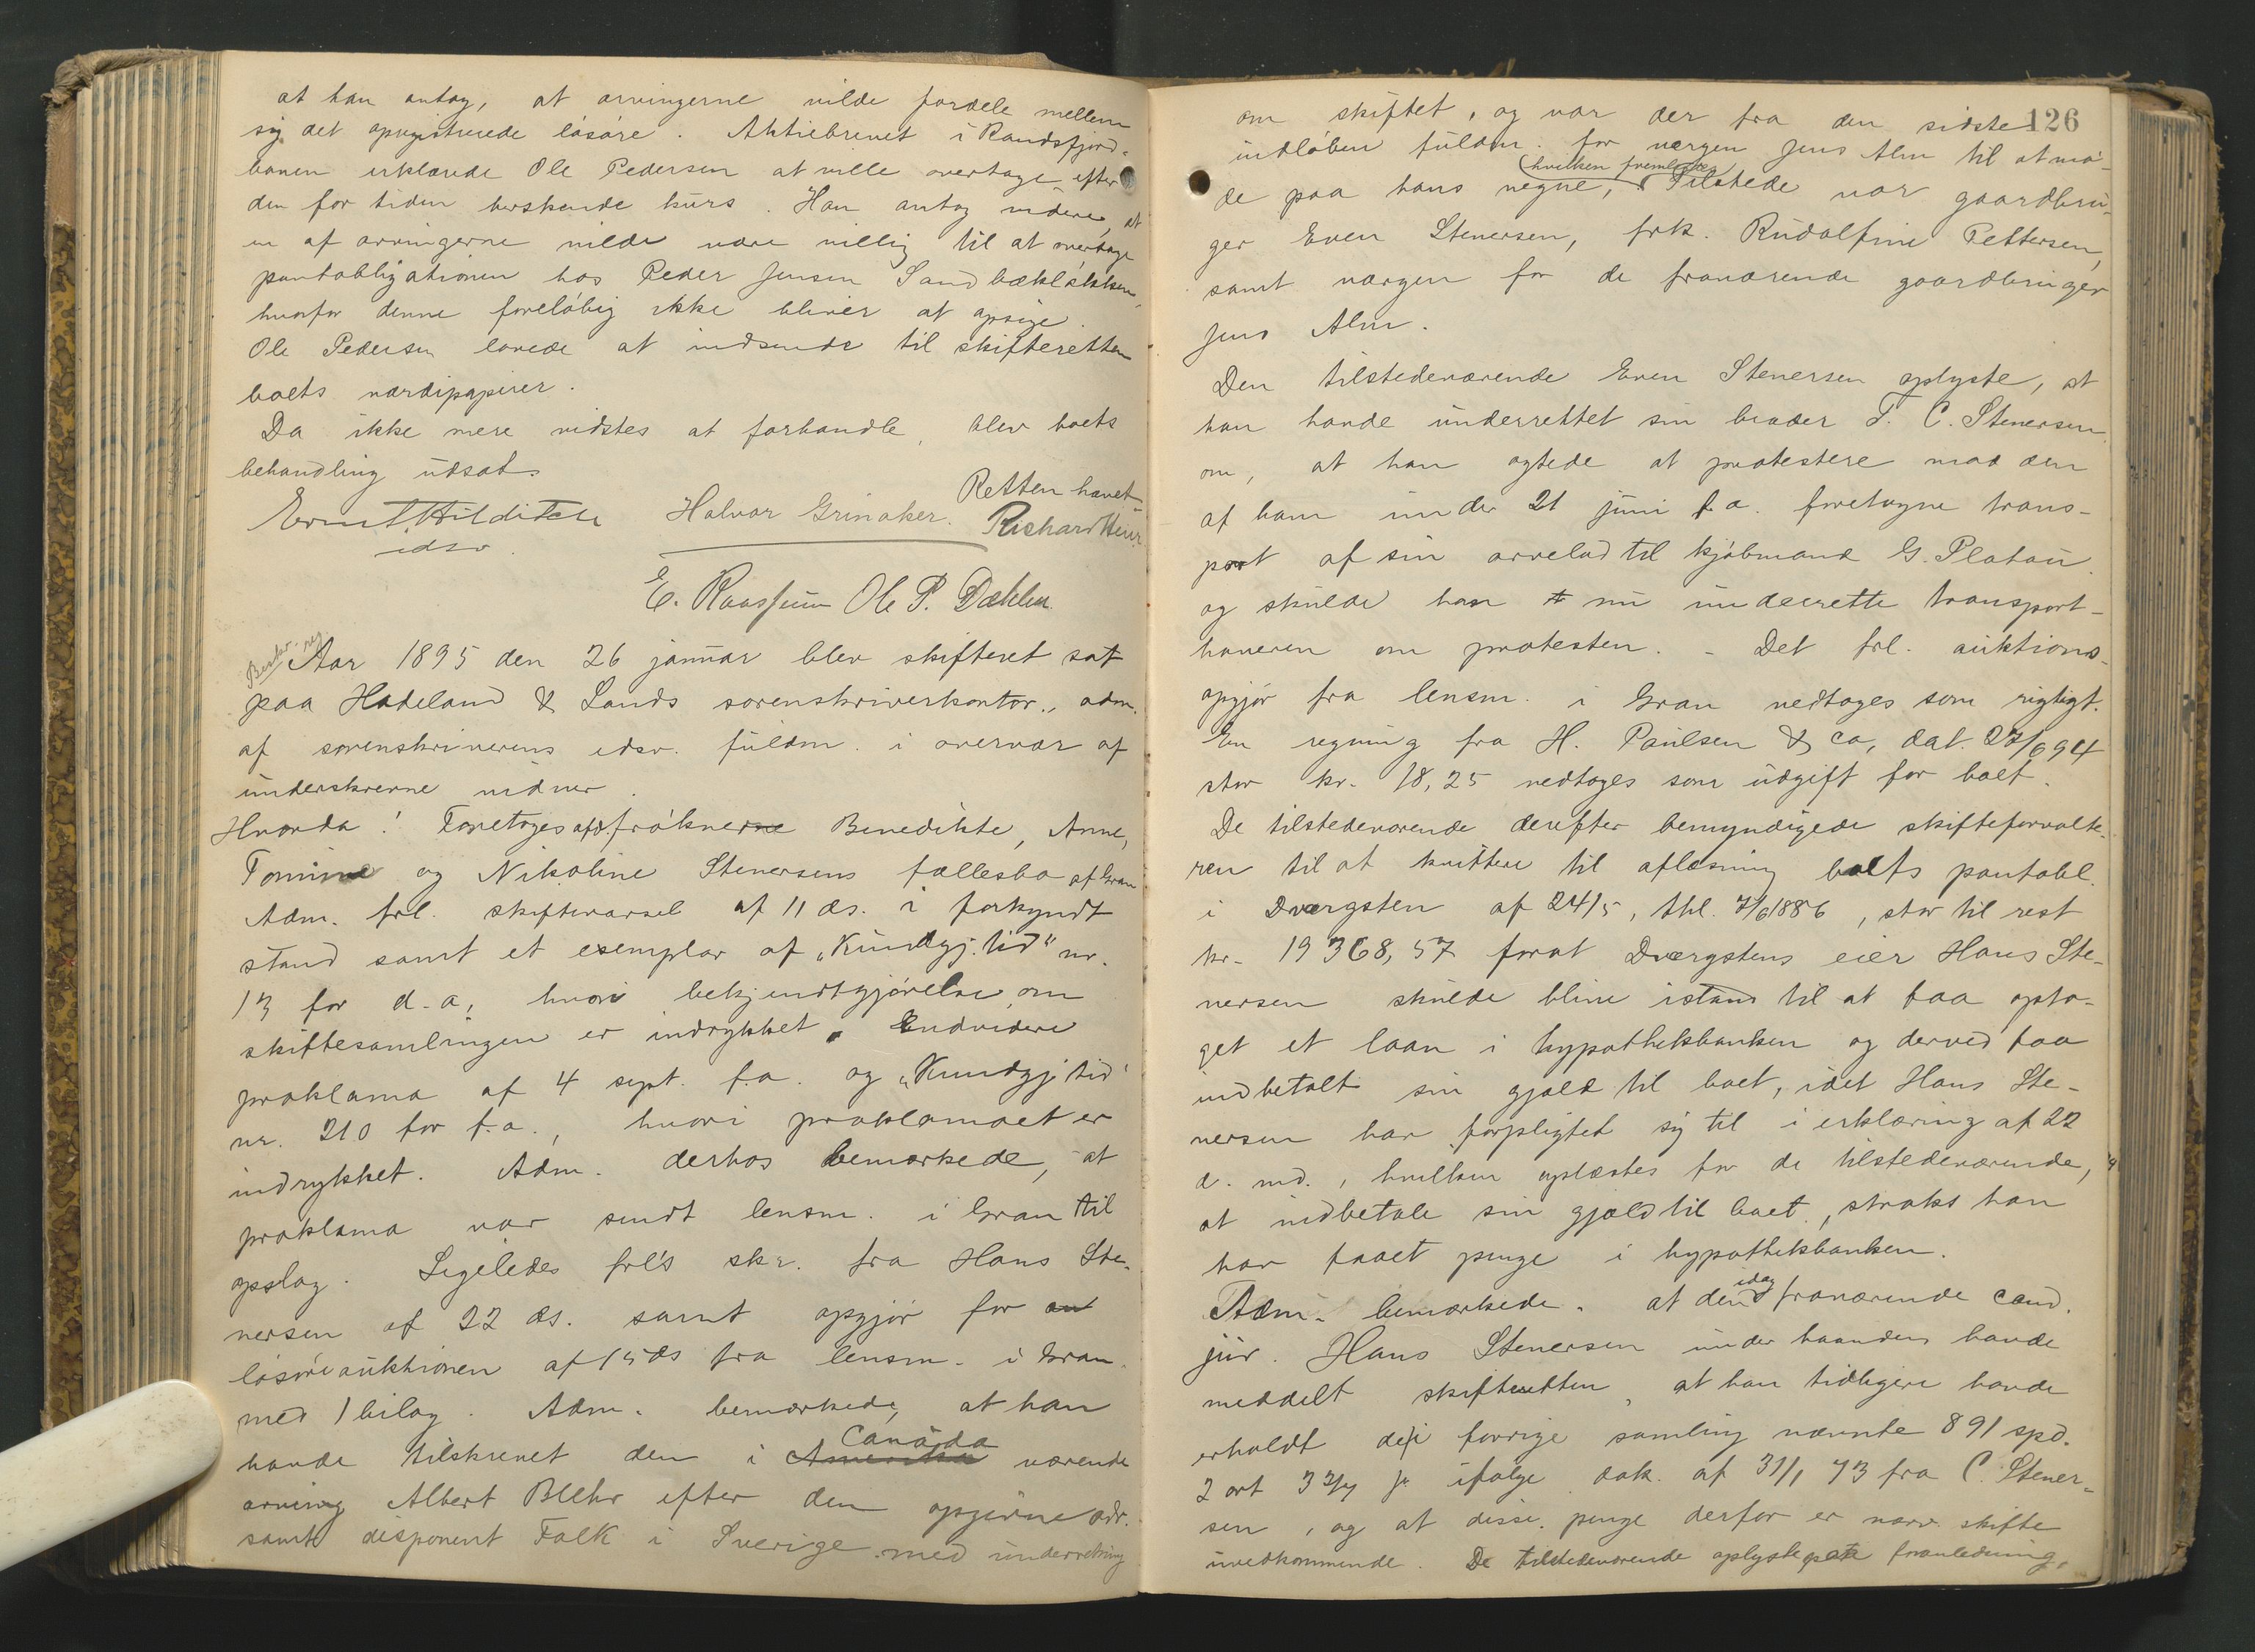 at han antog, at arvingerne vilde fordele mellem
sig det opregistrerede løsøre. Aktiebrevet i Randsfjord-
banen erklærede Ole Pedersen at ville overtage efter
den for tiden herskende kurs. Han antog videre, at
en af arvingerne vilde være villig til at overtage
pantobligationen hos Peder Jensen Sandbækløkken,
hvorfor denne foreløbig ikke bliver at opsige.
Ole Pedersen lovede at indsende til skifteretten
boets værdipapirer.
Da ikke mere vidstes at forhandle, blev boets
behandling udsat.
Retten hævet
Ernst Hilditch Halvor Grinaker. Richard
edsv.
E. Raassum Ole P. Dæhlen
Beskr. ny
Aar 1895 den 26 januar blev skifteret sat
paa Hadeland & Lands sorenskriverkontor, adm.
af sorenskriverens edsv. fuldm. i overvær af
underskrevne vidner.
Hvorda! Foretoges afd. frøknerne Benedikte, Anne,
Tomine og Nikoline Stenersens fællesbo af Gran
Adm. frl. skiftevarsel af 11 ds. i forkyndt
stand samt et exemplar af „Kundgj. tid" nr.
13 for d.a., hvori bekjendtgjørelse om
skiftesamlingen er indrykket. Endvidere
proklama af 4 sept. f.a. og „Kundgj tid"
nr. 210 for f.a., hvori proklamaet er
indrykket. Adm. derhos bemærkede, at
proklama var sendt lensm. i Gran til
opslag. Ligeledes frl's skr. fra Hans Ste-
nersen af 22 ds. samt opgjør for au
løsøreauktionen af 15 ds fra lensm. i Gran
med 1 bilag. Adm. bemærkede, at han
Canada
havde tilskrevet den i Amerika værende
arving Albert Blehr efter den opgivne adr.
samt disponent Falk i Sverige med underretning
126
om skiftet, og var der fra den sidste
indløben fuldm. for værgen Jens Alm til at mø-
hvilken fremlagdes
de paa hans vegne, Tilstede var gaardbru-
ger Even Stenersen, frk. Rudolfine Pettersen,
samt værgen for de fraværende gaardbruger
Jens Alm.
Den tilstedeværende Even Stenersen oplyste, at
han havde underrettet sin broder T. C. Stenersen
om, at han agtede at protestere mod den
af ham under 21 juni f.a. foretagne trans-
port af sin arvelod til kjøbmand G. Platou.
og skulde han nu underrette transport-
haveren om protesten. - Det frl. auktions-
opgjør fra lensm. i Gran vedtoges som rigtigt.
En regning fra H. Paulsen & co, dat. 27/6 94
stor kr. 18,25 vedtoges som udgift for boet.
De tilstedeværende derefter bemyndigede skifteforvalte-
ren til at kvittere til aflæsning boets pantobl.
i Dvergsten af 24/5, thl. 7/6 1886, stor til rest
kr. 19 368,57 forat Dværgstens eier Hans Ste-
nersen skulde blive istand til at faa opta-
get et laan i hypothekbanken og derved faa
indbetalt sin gjæld til boet, idet Hans Ste-
nersen har forpligtet sig til i erklæring af 22
d. md., hvilken oplæstes for de tilstedeværende,
at indbetale sin gjæld til boet, straks han
har faaet penge i hypothekbanken.
idag
Adm. bemærkede. at den fraværende cand.
jur. Hans Stenersen under haanden havde
meddelt skifteretten, at han tidligere havde
erholdt de i forrige samling nævnte 891 spd.
2 ort 3 3/7 s. ifølge dok. af 31/1 73 fra C. Stener-
sen, og at disse penge derfor er nærv. skifte
uvedkommende. De tilstedeværende oplyste paa foranledning,